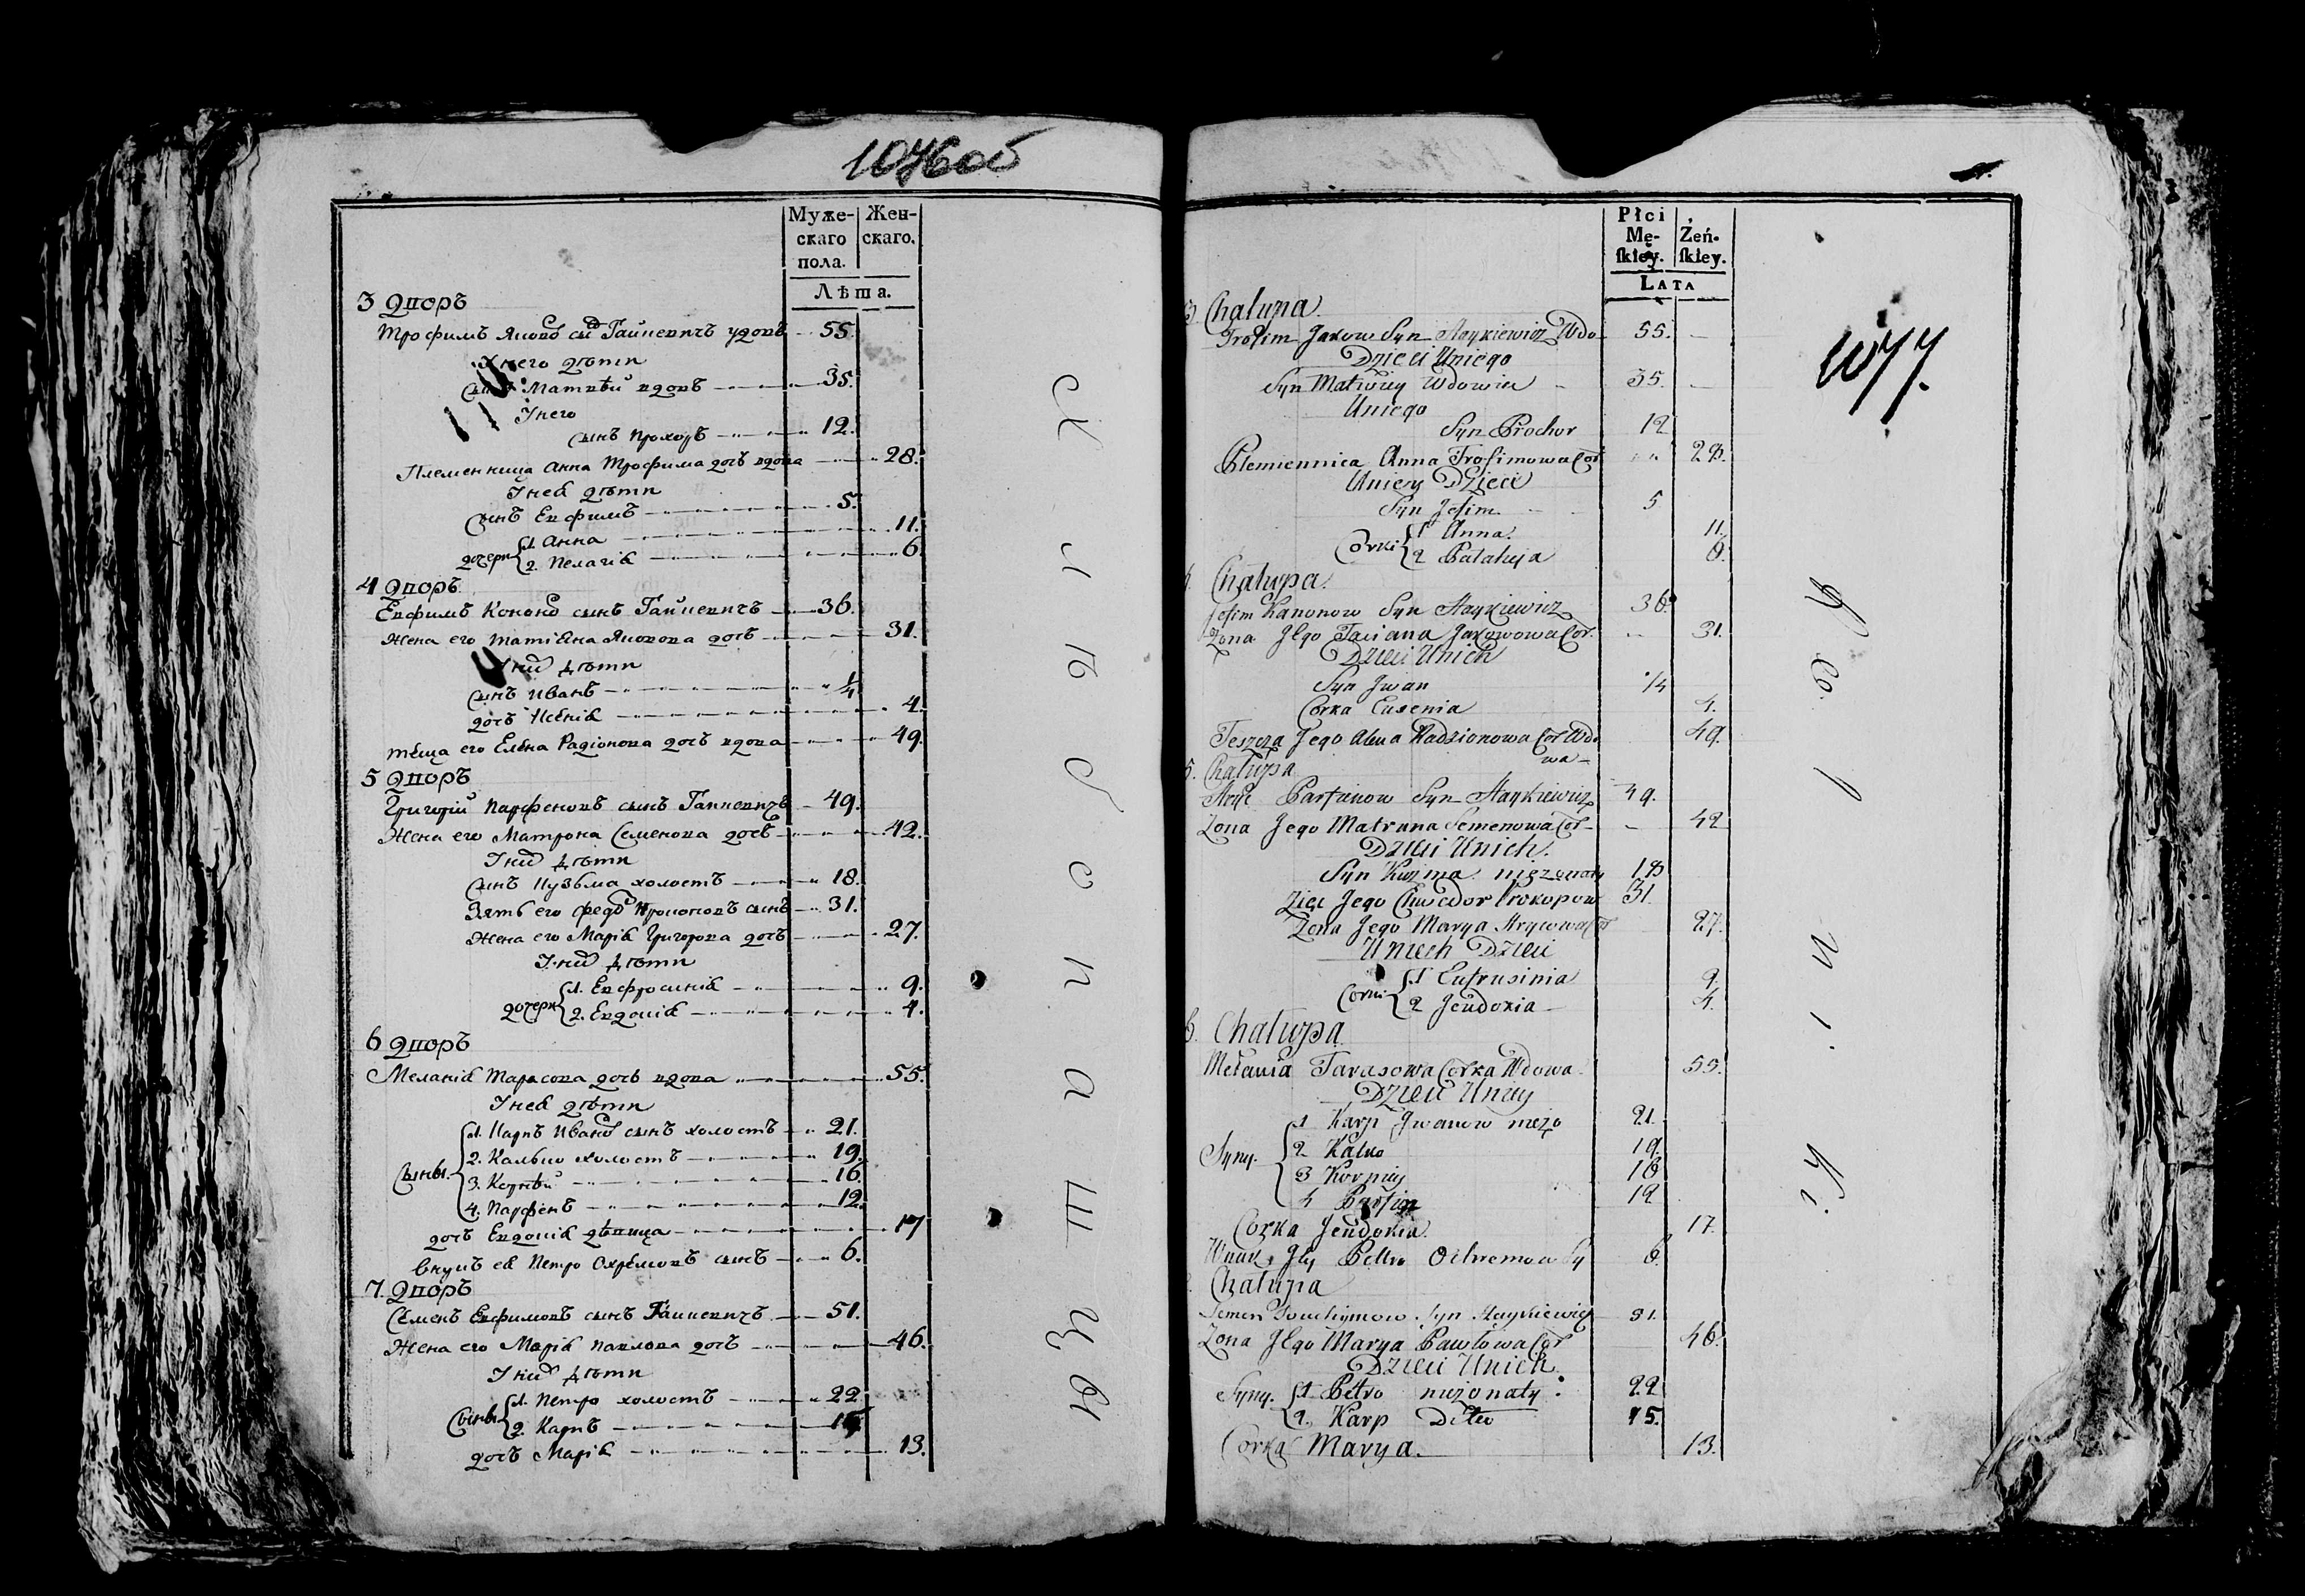 1076об
Муже-
скаго
пола.
Жен-
скаго.
Лѣта.
3 Дворъ
Трофимъ Яковъ сынъ Гайкевичъ удовъ 55.
У него дѣти
сынъ Матвѣй вдовъ 35.
У него
сынъ Прохоръ 12.
Племенница Анна Трофимова дочь вдова 28.
У нея дѣти
сынъ Евфимъ 5.
дочери 1. Анна 11.
2. Пелагія 6.
4 Дворъ
Евфимъ Кононовъ сынъ Гайкевичъ 36.
Жена его Татіяна Яковова дочь 31.
У нихъ дѣти
сынъ Иванъ 1/4
дочь Ксенія 4.
тёща его Елена Радіонова дочь вдова 49.
5 Дворъ
Григорій Парфеновъ сынъ Гайкевичъ 49.
Жена его Матрона Семенова дочь 42.
У нихъ дѣти
сынъ Кузьма холостъ 18.
Зять его Федоръ Прокоповъ сынъ 31.
Жена его Марія Григорова дочь 27.
У нихъ дѣти
дочери 1. Евфросинія 9.
2. Евдокія 4.
6 Дворъ
Меланія Тарасова дочь вдова 55.
У нея дѣти
сыны 1. Карпъ Ивановъ сынъ холостъ 21.
2. холостъ 19.
3. Корнѣй 16.
4. Парфенъ 12.
дочь Евдокія дѣвица 17
Внукъ ея Петро Охрѣмовъ сынъ 6.
7. Дворъ
Семенъ Евфимовъ сынъ Гайкевичъ 51.
Жена его Марія Павлова дочь 46.
У нихъ дѣти
сыны 1. Петро холостъ 22.
2. Карпъ 15
дочь Марія 13.
Х л ѣ б о п а ш ц ы
Płci
Mę-
skiey.
Żeń-
skiey.
Lata
1077.
3. Chałupa.
Trofim Jakow Syn Haykiewicz Wdo 55.
Dzieci Uniego
Syn Matwiey Wdowiec 35.
Uniego
Syn Prochor 12
Plemiennica Anna Trofimowa Cor 28.
Uniey Dzieci
Syn Jefim 5
Corki 1 Anna 11.
2 Palahyja 6.
4. Chałupa.
Jefim Kanonow Syn Haykiewicz 36
Zona Jego Taciana Jakowowa Cor. 31.
Dzieci Unich
Syn Jwan 1/4
Corka Euxenia 4.
Teszcza Jego Radzionowa Cor Wdo 49.
wa
5. Chałupa
Hryc Parfanow Syn Haykiewicz 49.
Zona Jego Matruna Semenowa Cor 42
Dzieci Unich.
Syn Kuzma niezonaty 18
Zięc Jego Chwedor Prokopow 31
Zona Jego Marya Hrycowa Cor 27.
Unich Dzieci
Corki 1 Eufrusinia 9.
2 Jeudokia 4.
6. Chałupa
Mełania Tarasowa Corka Wdowa 55.
Dzieci Uniey
Syny. 1 Karp Jwanow nieżo 21.
2 19.
3 Korniey 16
4 Parfien 12
Corka Jeudokia 17.
Wnuk Jey Petro Ochremow Sy 6.
Chałupa
Semen Jouchymow Syn Haykiewicz 51.
Zona Jego Marya Pawłowa Cor 46.
Dzieci Unich
Syny. 1 Petro nieżonaty 22
2. Karp 15.
Corka Marya. 13.
R o l n i k i